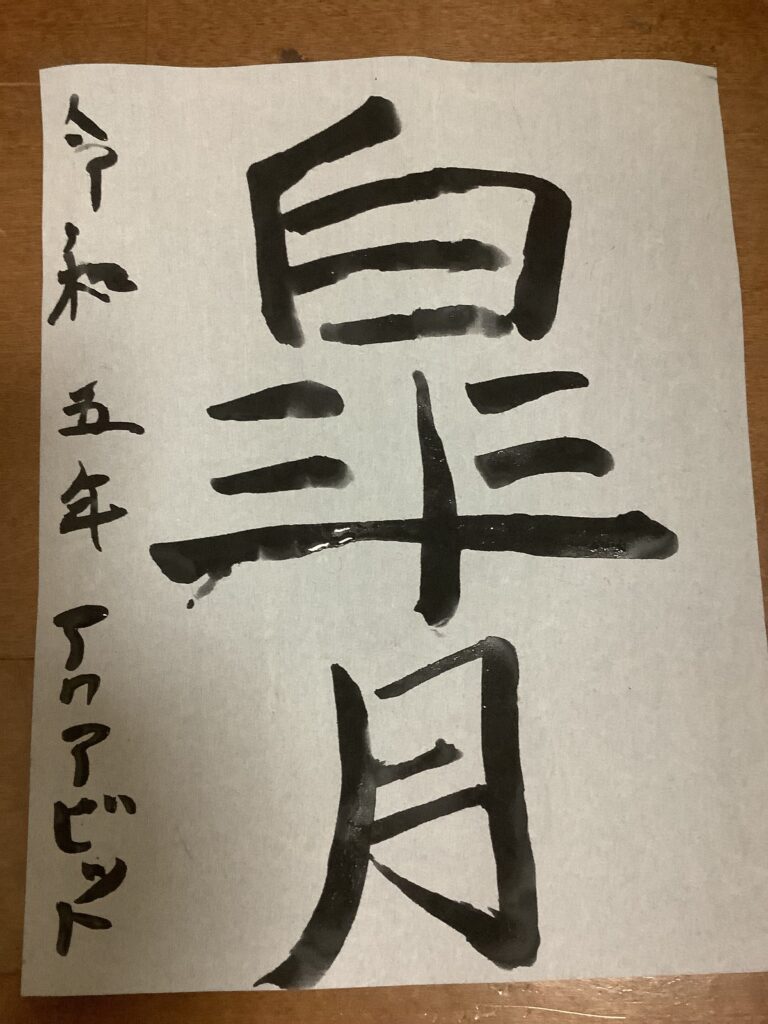 皐月
令和五年アクアビット